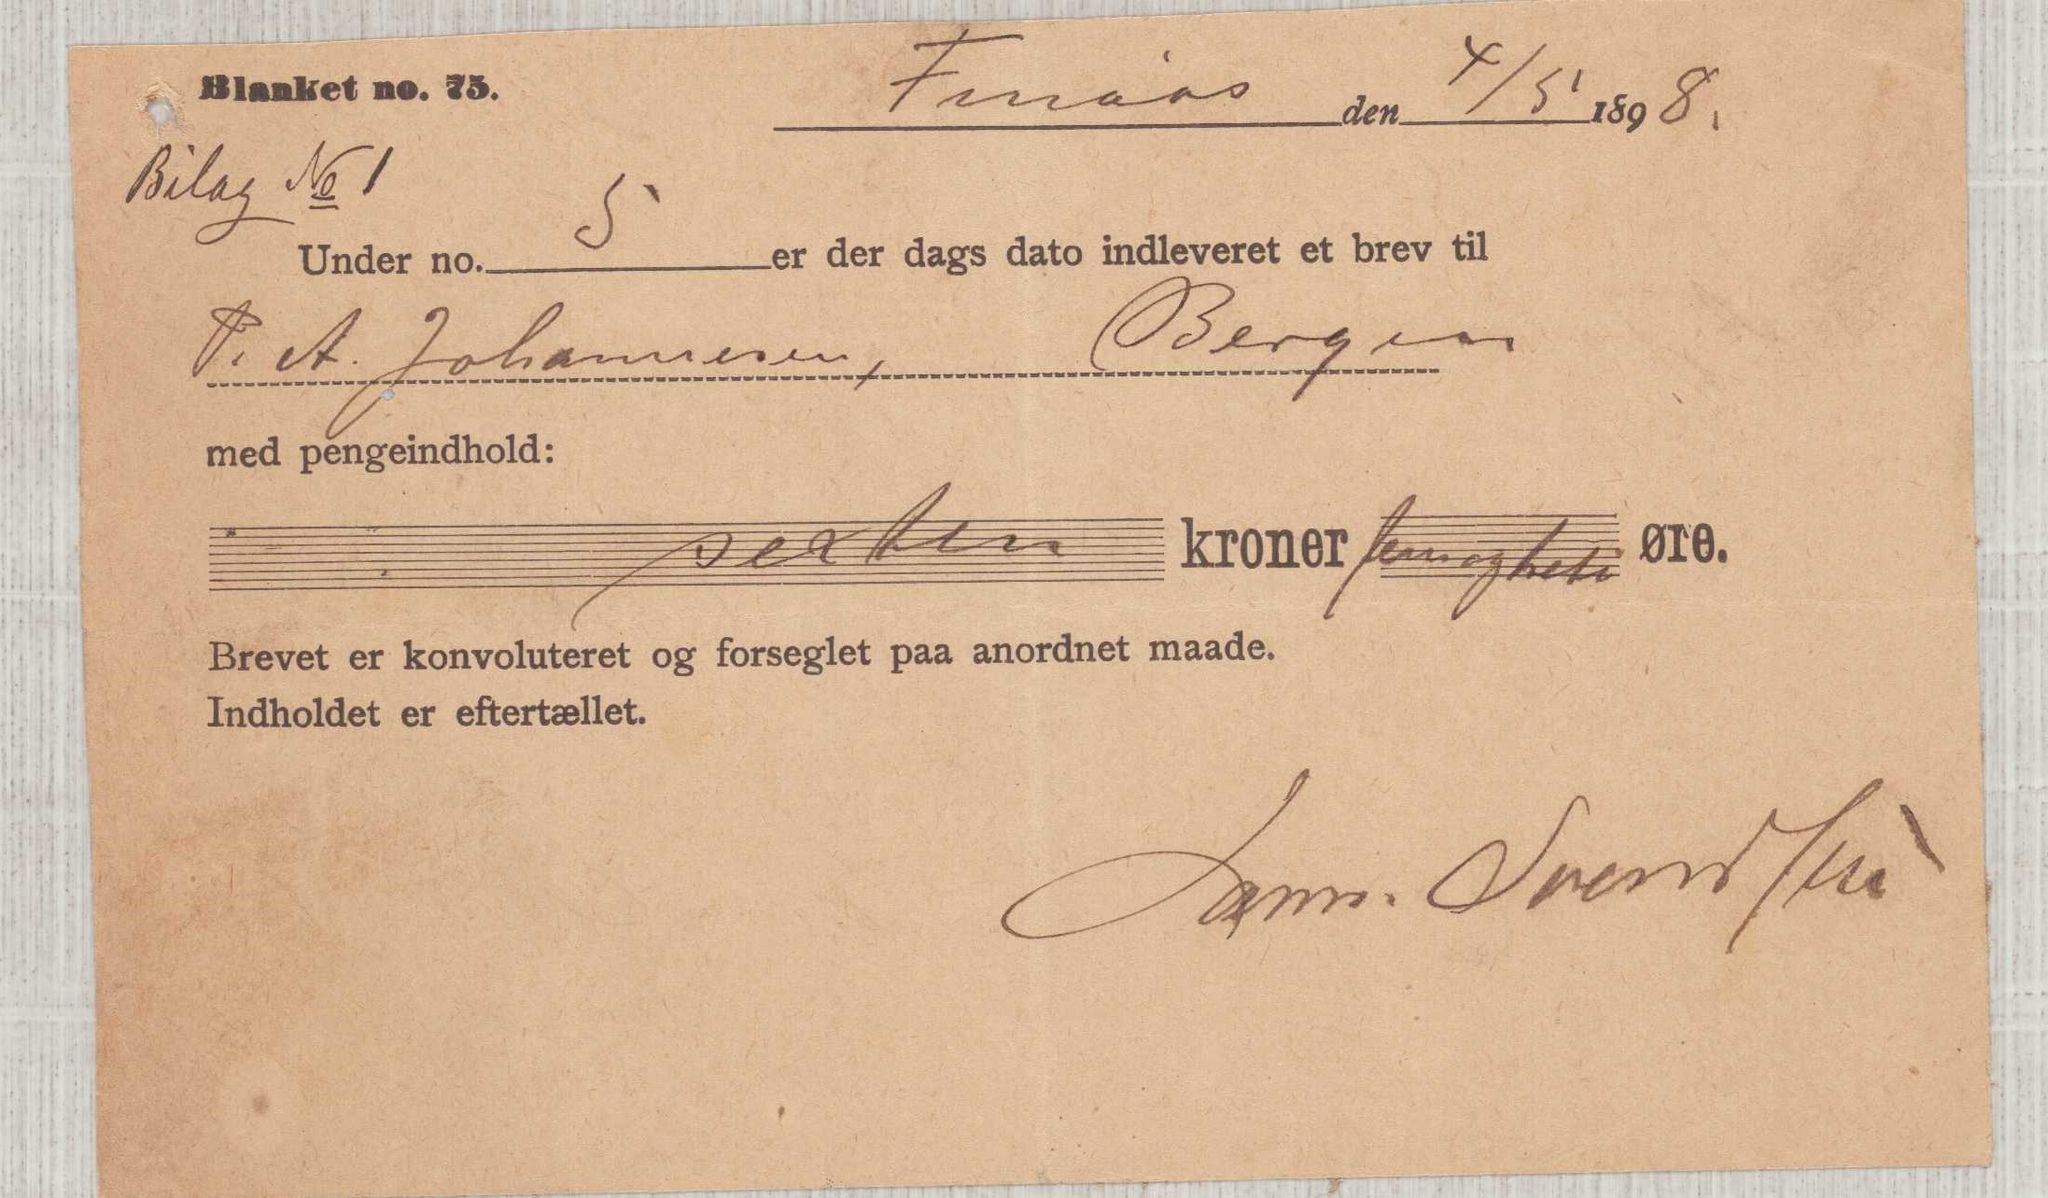 Blanket no. 75.
Finaas den 4/5 1898.
Bilag No 1
Under no. 5 er der dags dato indleveret et brev til
P. A. Johannesen, Bergen
med pengeindhold:
sexten kroner femogtreti øre.
Brevet er konvoluteret og forseglet paa anordnet maade.
Indholdet er eftertællet.
Svendsen